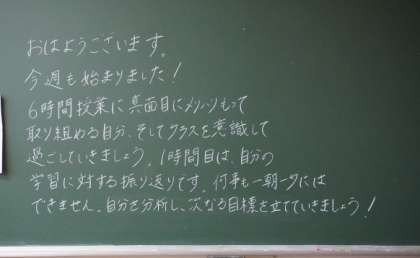 おはようございます。
今週も始まりました！
6時間授業に真面目にメリハリもって
取り組める自分、そしてクラスを意識して
過ごしていきましょう。1時間目は、自分の
学習に対する振り返りです。何事も一朝一夕には
できません。自分を分析し、次なる目標を立てていきましょう！